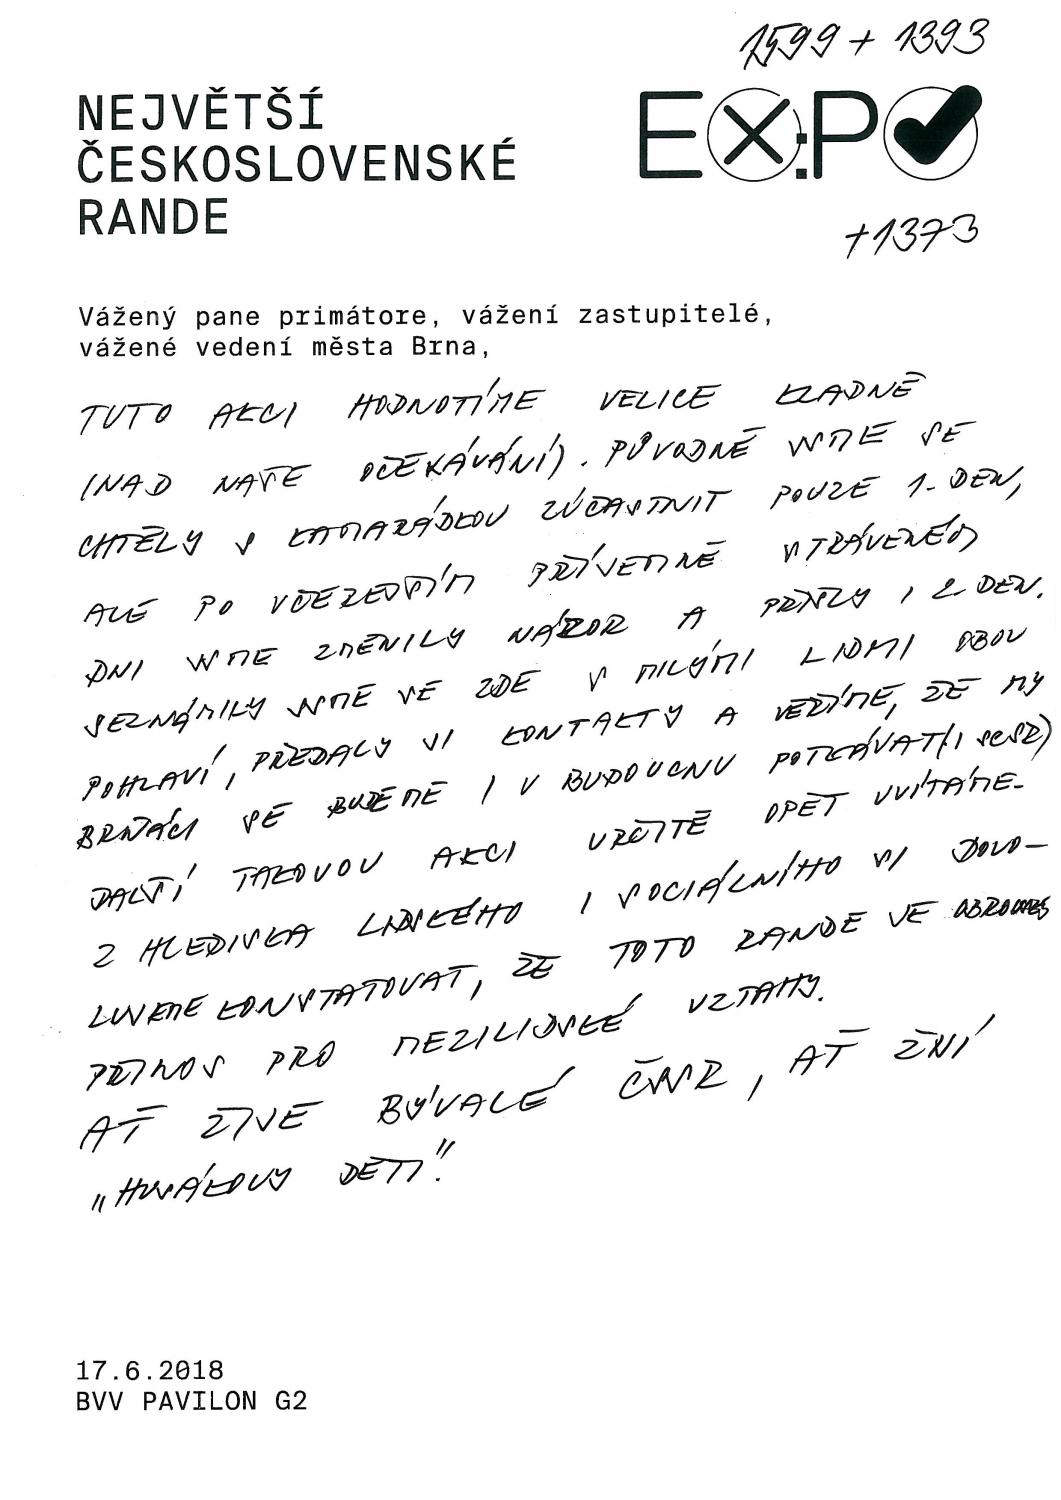 1599 + 1393
NEJVĚTŠÍ
ČESKOSLOVENSKÉ
RANDE
EX:PO
+1373
Vážený pane primátore, vážení zastupitelé,
vážené vedení města Brna,
TUTO AKCI HODNOTÍME VELICE KLADNĚ
(NAD NAŠE OČEKÁVÁNÍ). PŮVODNĚ JSME SE
CHTĚLY S KAMARÁDKOU ZÚČASTNIT POUZE 1. DEN,
ALE PO VČEREJŠÍM PŘÍJEMNĚ STRÁVENÉM
DNI JSME ZMĚNILY NÁZOR A PŘIŠLY I 2. DEN.
SEZNÁMILY JSME SE ZDE S MILÝMI LIDMI OBOU
POHLAVÍ, PŘEDALY SI KONTAKTY A VĚŘÍME, ŽE MY
BRŇÁCI SE BUDEME I V BUDOUCNU POTKÁVAT (I SČSR)
DALŠÍ TAKOVOU AKCI URČITĚ OPĚT UVÍTÁME.
Z HLEDISKA LIDSKÉHO I SOCIÁLNÍHO SI DOVO-
LUJEME KONSTATOVAT, ŽE TOTO RANDE JE OBROVSKÝ
PŘÍNOS PRO MEZILIDSKÉ VZTAHY.
AŤ ŽIJE BÝVALÉ ČSSR, AŤ ŽIJÍ
„HUSÁKOVY DĚTI".
17.6.2018
BVV PAVILON G2